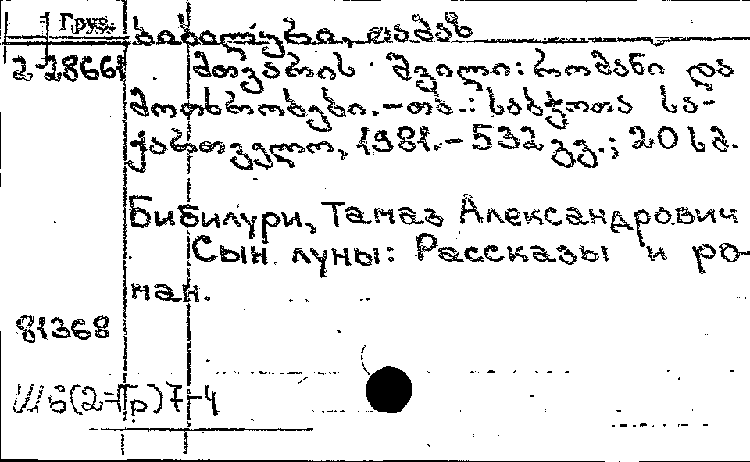 Груз.
ბიბილური, თამაზ
2-28661 მთვარის შვილი: რომანი და
მოთხრობები.-თბ.: საბჭოთა სა-
ქართველო, 1981.-532 გვ.; 20 სმ.
Бибилури, Тамаз Александрович
Сын луны: Рассказы и ро-
ман.
81368
Ш6(2=Гр)7-4